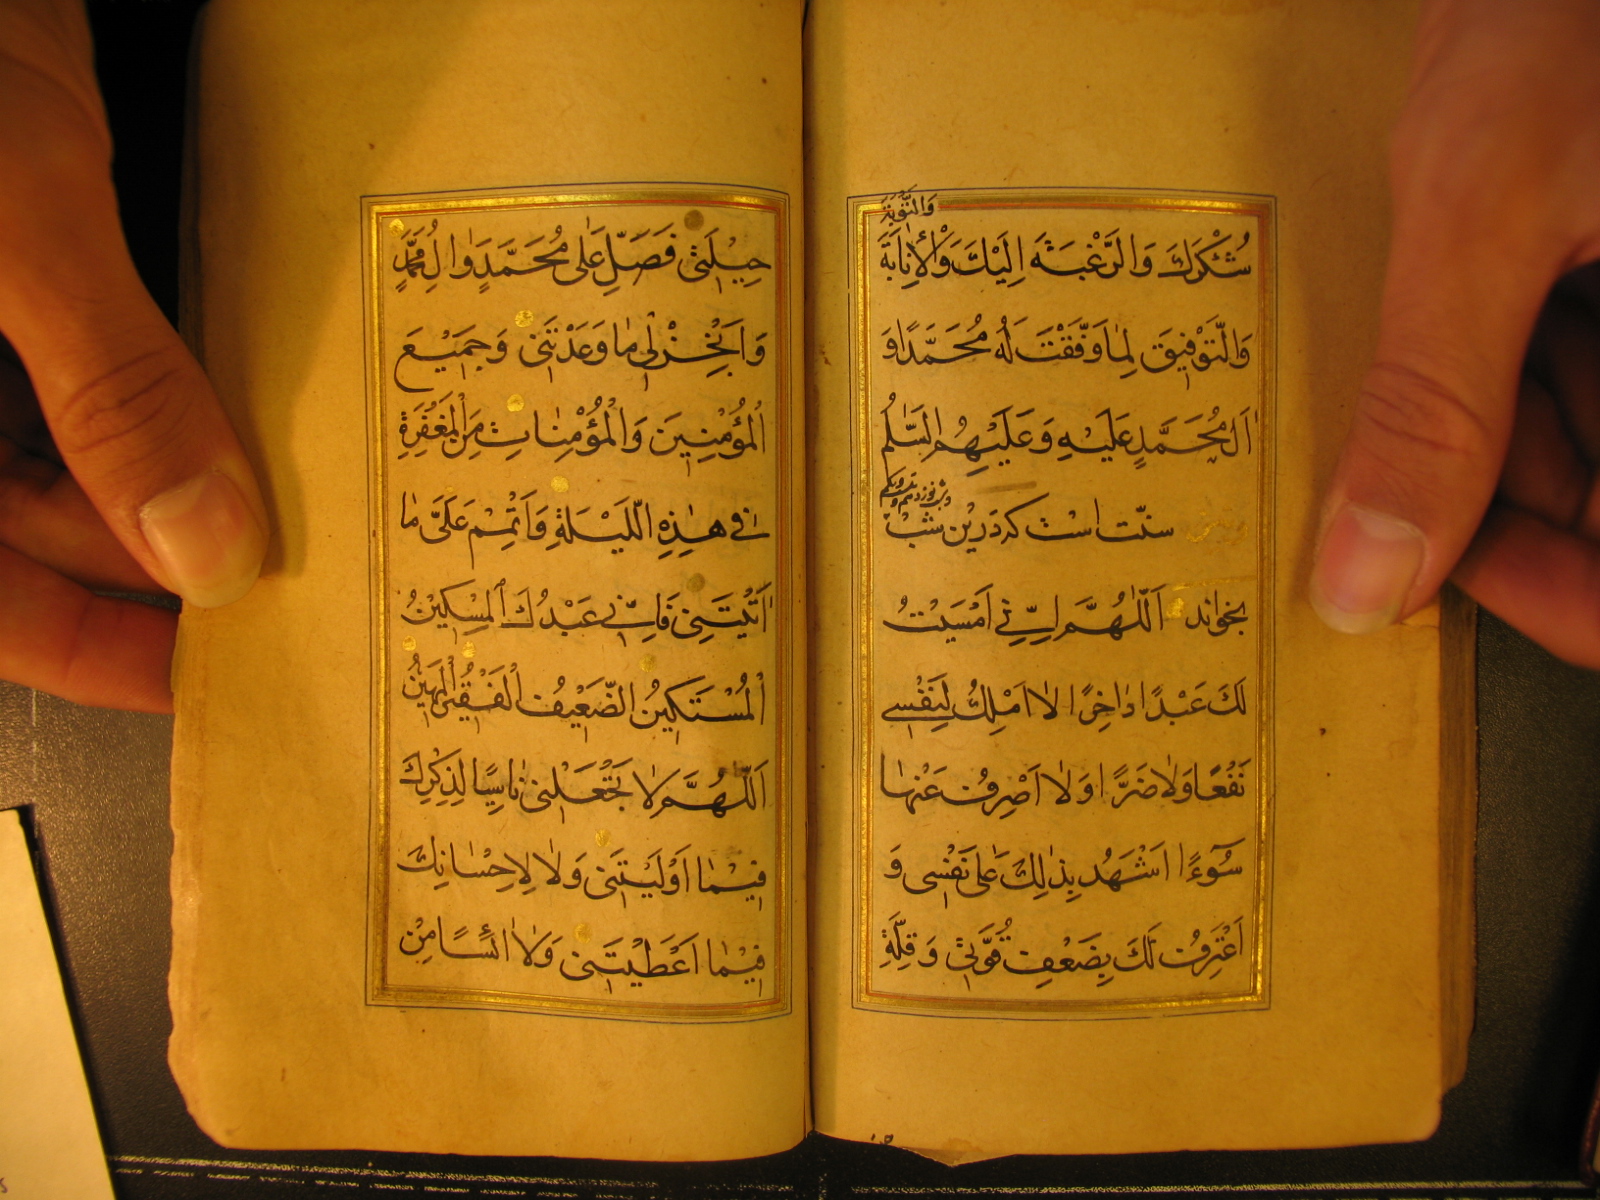 وَالتَّوْبَةَ
شُكْرَكَ وَالرَّغْبَةَ اِلَيْكَ وَالْاِنَابَةَ
وَالتَّوْفِيقَ لِمَا وَفَّقْتَ لَهُ مُحَمَّدًا وَ
اٰلَ مُحَمَّدٍ عَلَيْهِ وَعَلَيْهِمُ السَّلٰمُ
سنّت است كه درين شب
بخواند اَللّٰهُمَّ اِنِّي اَمْسَيْتُ
لَكَ عَبْدًا دٰاخِرًا لاٰ اَمْلِكُ لِنَفْسِي
نَفْعًا وَلاٰ ضَرًّا وَلاٰ اَصْرِفُ عَنْهٰا
سُوٓءًا اَشْهَدُ بِذٰلِكَ عَلٰى نَفْسِى وَ
اَعْتَرِفُ لَكَ بِضَعْفِ قُوَّتِي وَقِلَّةِ
حِيْلَتِي فَصَلِّ عَلٰى مُحَمَّدٍ وَاٰلِ مُحَمَّدٍ
وَاَنْجِزْ لِي مٰا وَعَدْتَنِي وَجَمِيْعَ
الْمُؤْمِنِيْنَ وَالْمُؤْمِنٰاتِ مِنَ الْمَغْفِرَةِ
فِي هٰذِهِ اللَّيْلَةِ وَاَتْمِمْ عَلَىَّ مٰا
اٰتَيْتَنِي فَاِنِّي عَبْدُكَ الْمِسْكِيْنُ
الْمُسْتَكِيْنُ الضَّعِيْفُ الْفَقِيْرُ الْمَهِيْنُ
اَللّٰهُمَّ لاٰ تَجْعَلْنِي نٰاسِيًا لِذِكْرِكَ
فِيْمٰا اَوْلَيْتَنِي وَلاٰ لِاِحْسٰانِكَ
فِيْمٰا اَعْطَيْتَنِي وَلاٰ اٰئِسًا مِنْ